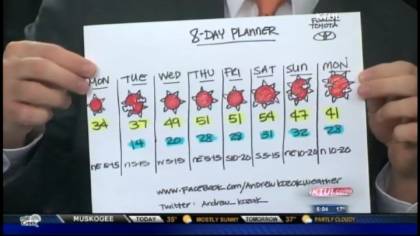 8-DAY PLANNER
TOYOTA
MON TUE WED THU FRI SAT SUN MON
34 37 49 51 51 54 47 41
14 20 28 28 31 32 28
NE 5-15 N 5-15 W 5-15 NE 5-15 S 10-20 S 5-15 NE 10-20 N 10-20
www.Facebook.com/AndrewKozakWeather
Twitter: Andrew_Kozak
6:04 17°
MUSKOGEE TODAY 35° MOSTLY SUNNY TOMORROW 37° PARTLY CLOUDY